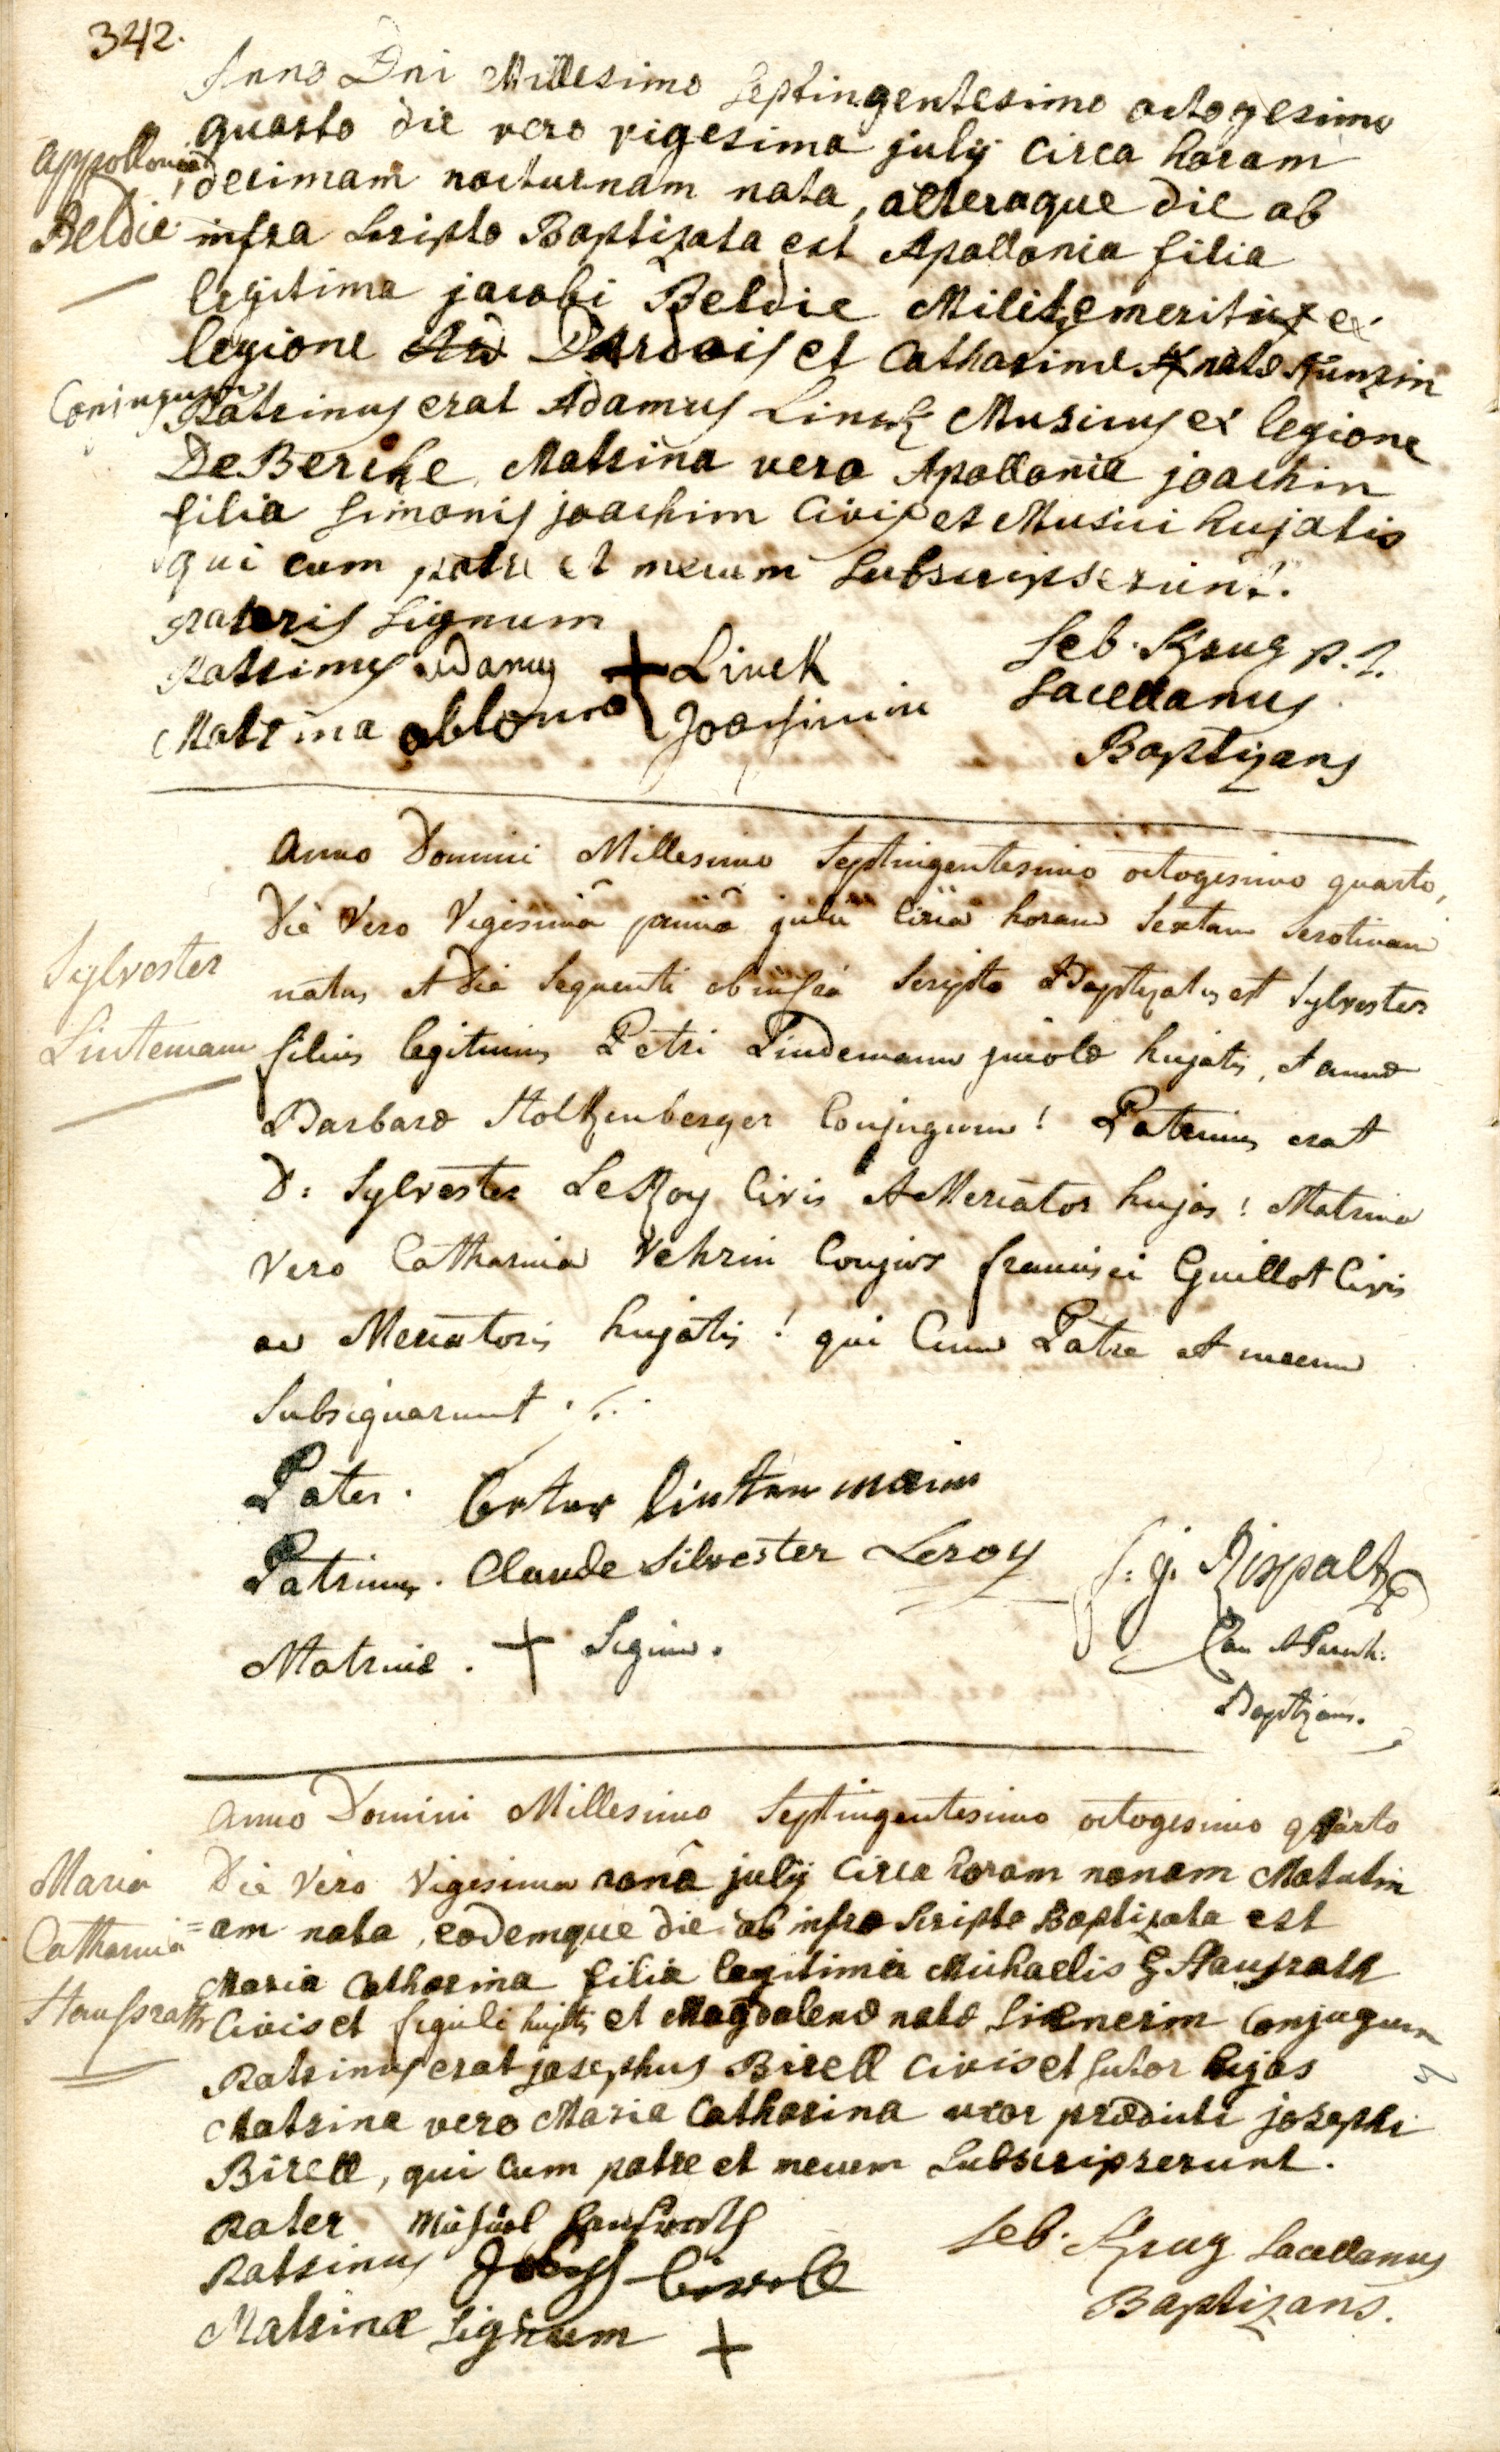 342.
Anno Dni Millesimo Septingentesimo octogesimo
quarto die vero vigesima julij circa horam
Appollonia
decimam nocturnam nata, alteraque die ab
Beldie
infra Scripto Baptizata est Apollonia filia
legitima jacobi Beldie Milit emerit ex
legione Dardois et Catharinæ natæ Künzin
Conjugum
Patrinus erat Adamus Linck Musicus ex legione
De Berche, Matrina vero Apollonia joachin
filia Simonis joachim Civis et Musici hujatis
qui cum patre et mecum Subscripserunt.
patris Signum
Patrinus adamus + Linck
Matrina ablonia Joachimin
Seb. Krug p. t.
Sacellanus
Baptizans
Anno Domini Millesimo Septingentesimo octogesimo quarto,
Die Vero Vigesimâ primâ julii Circa horam Sextam Serotinam
Sylvester
natus et die Sequenti ab infra Scripto Baptizatus est Sylvester
Lintemann
filius legitimus Petri Lindemann incolæ hujatis, et annæ
Barbaræ Holtzenberger Conjugum! Patrinus erat
D: Sylvester LeRoy Civis et Mercator hujas! Matrina
Vero Catharina Vehrin Conjux francisci Guillot Civis
ac Mercatoris hujatis! qui Cum Patre et mecum
Subsignarunt ./.
Pater. Petter lintenmann
Patrinus. Claude Silvester Leroy
Matrinæ. + Signu.
f: g. Rispalt
Can et Paroch.
Baptizans.
Anno Domini Millesimo Septingentesimo octogesimo quarto
Maria
Die Vero Vigesima nonâ julij Circa horam nonam Matutin
Catharina
=am nata, eodemque die ab infra Scripto Baptizata est
Maria Catharina filia legitima Michaelis Haussrath
Haussrath
Civis et figuli hujtis et Magdalenæ natæ Lienerin Conjugum
Patrinus erat josephus Birell Civis et Sutor hujas
Matrina vero Maria Catharina uxor prædicti josephi
Birell, qui Cum patre et mecum Subscripserunt.
Pater Michael Haussrath
Patrinus Joseph birell
Matrinæ Signum +
Seb. Krug Sacellanus
Baptizans.